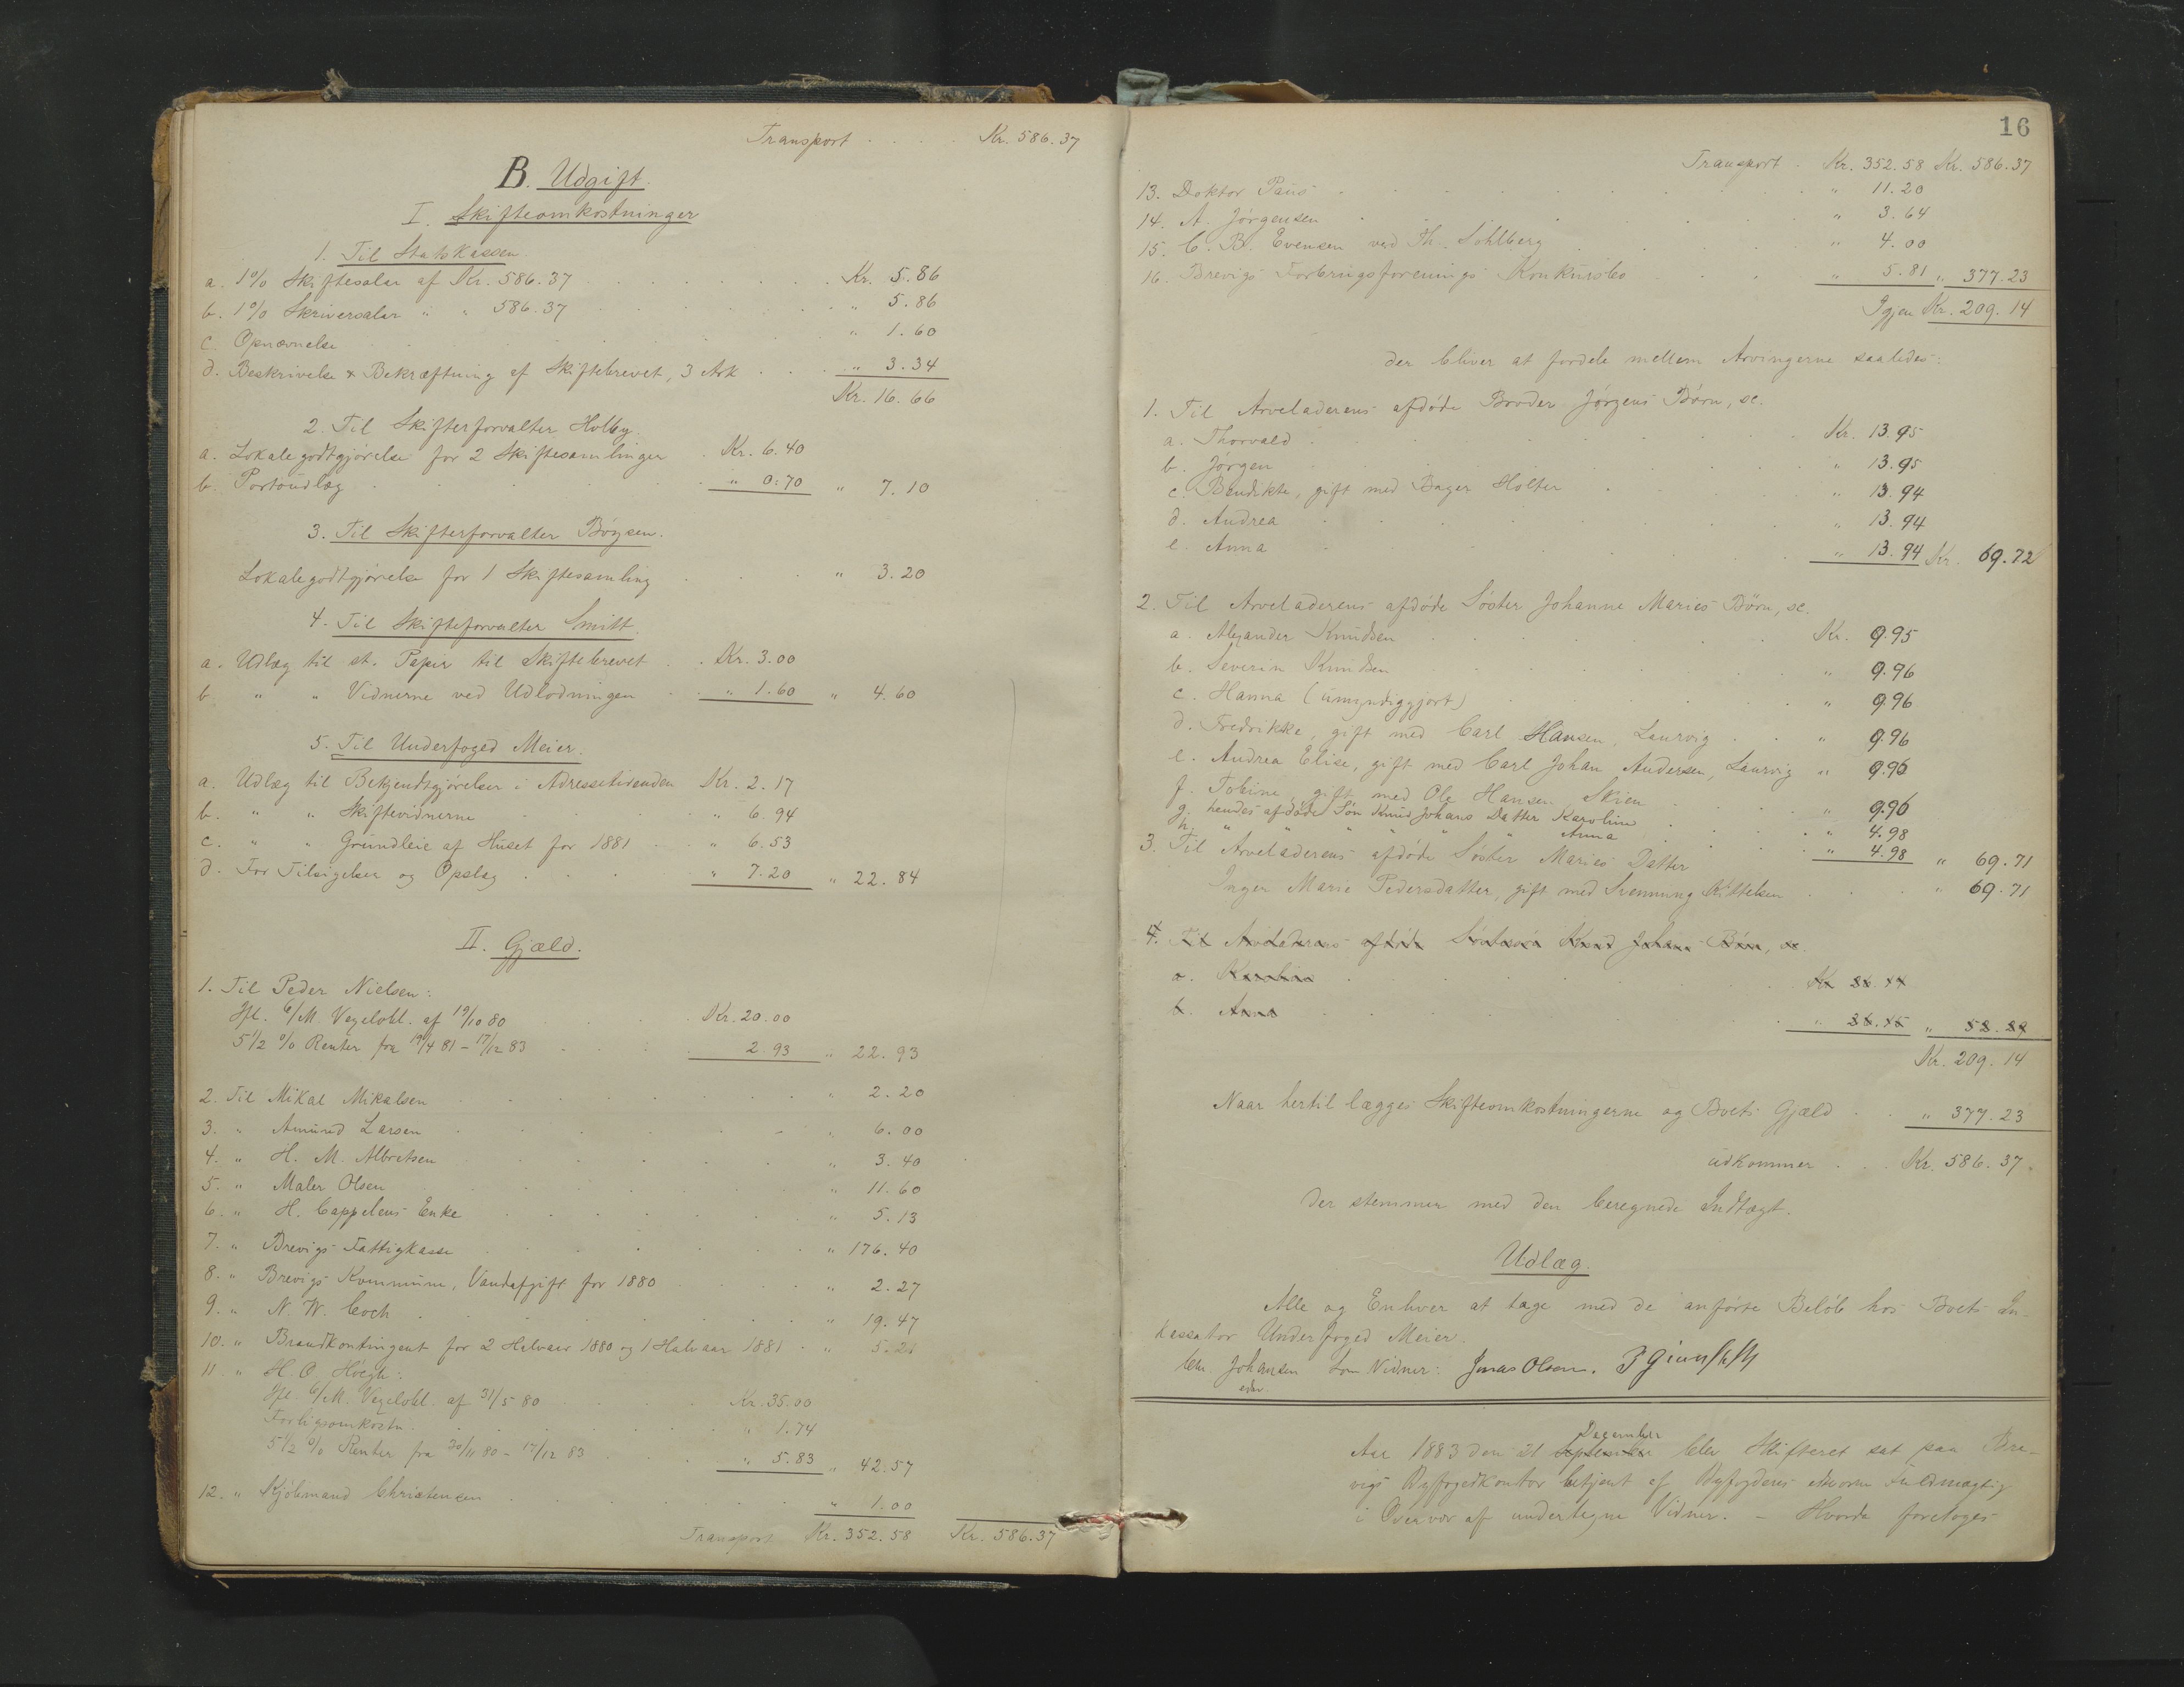 Transport . . . . Kr. 586.37
B. Udgift.
I. Skifteomkostninger
1. Til Statskassen.
a. 1% Skiftesalar af Kr. 586.37 . . . Kr. 5.86
b. 1% Skriversalar " " 586.37 . . . " 5.86
c. Opnævnelse . . . " 1.60
d. Beskrivelse & Bekræftning af Skiftebrevet, 3 Ark . . . " 3.34
Kr. 16.66
2. Til Skifterforvalter Holby.
a. Lokalegodtgjørelse for 2 Skiftesamlinger . Kr. 6.40
b. Portoudlæg . . . " 0.70 " 7.10
3. Til Skifterforvalter Böysen.
Lokalegodtgjörelse for 1 Skiftesamling . . . " 3.20
4. Til Skifteforvalter Smitt.
a. Udlæg til st. Papir til Skiftebrevet . . Kr. 3.00
b. " " Vidnerne ved Udlodningen . . " 1.60 " 4.60
5. Til Underfoged Meier.
a. Udlæg til Bekjendtgjörelser i Adressetidenden Kr. 2.17
b. " " Skiftevidnerne . . . " 6.94
c. " " Grundleie af Huset for 1881 . . " 6.53
d. For Tilsigelser og Opslag . . . " 7.20 " 22.84
II. Gjæld.
1. Til Peder Nielsen:
Ifl. 6/M. Vexelobl. af 19/10 80 . . . Kr. 20.00
5 1/2 % Renter fra 19/4 81 - 17/12 83 . . . 2.93 " 22.93
2. Til Mikal Mikalsen . . . " 2.20
3. " Amund Larsen . . . " 6.00
4. " H. M. Albretsen . . . " 3.40
5. " Maler Olsen . . . " 11.60
6. " H. Cappelens Enke . . . " 5.13
7. " Brevigs Fattigkasse . . . " 176.40
8. " Brevigs Kommune, Vandafgift for 1880 . . . " 2.27
9. " N. W. Coch . . . " 19.47
10. " Brandkontingent for 2 Halvaar 1880 og 1 Halvaar 1881 . " 5.21
11. " H. O. Höegh:
Ifl. 6/M. Vexelobl. af 31/5 80 . . . Kr. 35.00
Forligsomkostn. . . . " 1.74
5 1/2 % Renter fra 30/11 80 - 17/12 83 . . . " 5.83 " 42.57
12. " Kjöbmand Christensen . . . " 1.00
Transport Kr. 352.58 Kr. 586.37
16
Transport . Kr. 352.58 Kr. 586.37
13. Doktor Paus . . . " 11.20
14. A. Jörgensen . . . " 3.64
15. C. B. Evensen ved Th. Sohlberg . . . " 4.00
16. Brevigs Forbrugsforenings Konkursbo . . . " 5.81 " 377.23
Igjen Kr. 209.14
der bliver at fordele mellem Arvingerne saaledes:
1. Til Arveladerens afdöde Broder Jörgens Börn, sc.
a. Thorvald . . . Kr. 13.95
b. Jörgen . . . " 13.95
c. Bendikte, gift med Bager Holter . . . " 13.94
d. Andrea . . . " 13.94
e. Anna . . . " 13.94 Kr. 69.72
2. Til Arveladerens afdöde Söster Johanne Maries Börn, sc.
a. Alexander Knudsen . . . Kr. 9.95
b. Severin Knudsen . . . " 9.96
c. Hanna (umyndiggjort) . . . " 9.96
d. Fredrikke, gift med Carl Hansen, Laurvig . . " 9.96
e. Andrea Elise, gift med Carl Johan Andersen, Laurvig " 9.96
f. Tobine, gift med Ole Hansen Skien . . . " 9.96
g. hendes afdöde Sön Knud Johans Datter Karoline . . . " 4.98
h. " " " " " " Anna . . . " 4.98 " 69.71
3. Til Arveladerens afdöde Söster Maries Datter
Inger Marie Pedersdatter, gift med Svennung Kittelsen . . . " 69.71
4. Til Arveladerens afdöde Söstersön Knud Johans Börn, sc.
a. Karoline . . . Kr 26.44
b. Anna . . . " 26.45 " 52.89
Kr. 209.14
Naar hertil lægges Skifteomkostningerne og Boets Gjæld . " 377.23
udkommer . . . Kr. 586.37.
der stemmer med den beregnede Indtægt.
Udlæg.
Alle og Enhver at tage med de anförte Belöb hos Boets In-
kassator Underfoged Meier.
Chr Johansen Som Vidner: Jonas Olsen.
edsv.
December
Aar 1883 den 21 September blev Skifteret sat paa Bre-
vigs Byfogedkontor betjent af Byfogdens edsvorne Fuldmægtig
i Overvær af undertegne Vidner. - Hvorda foretoges